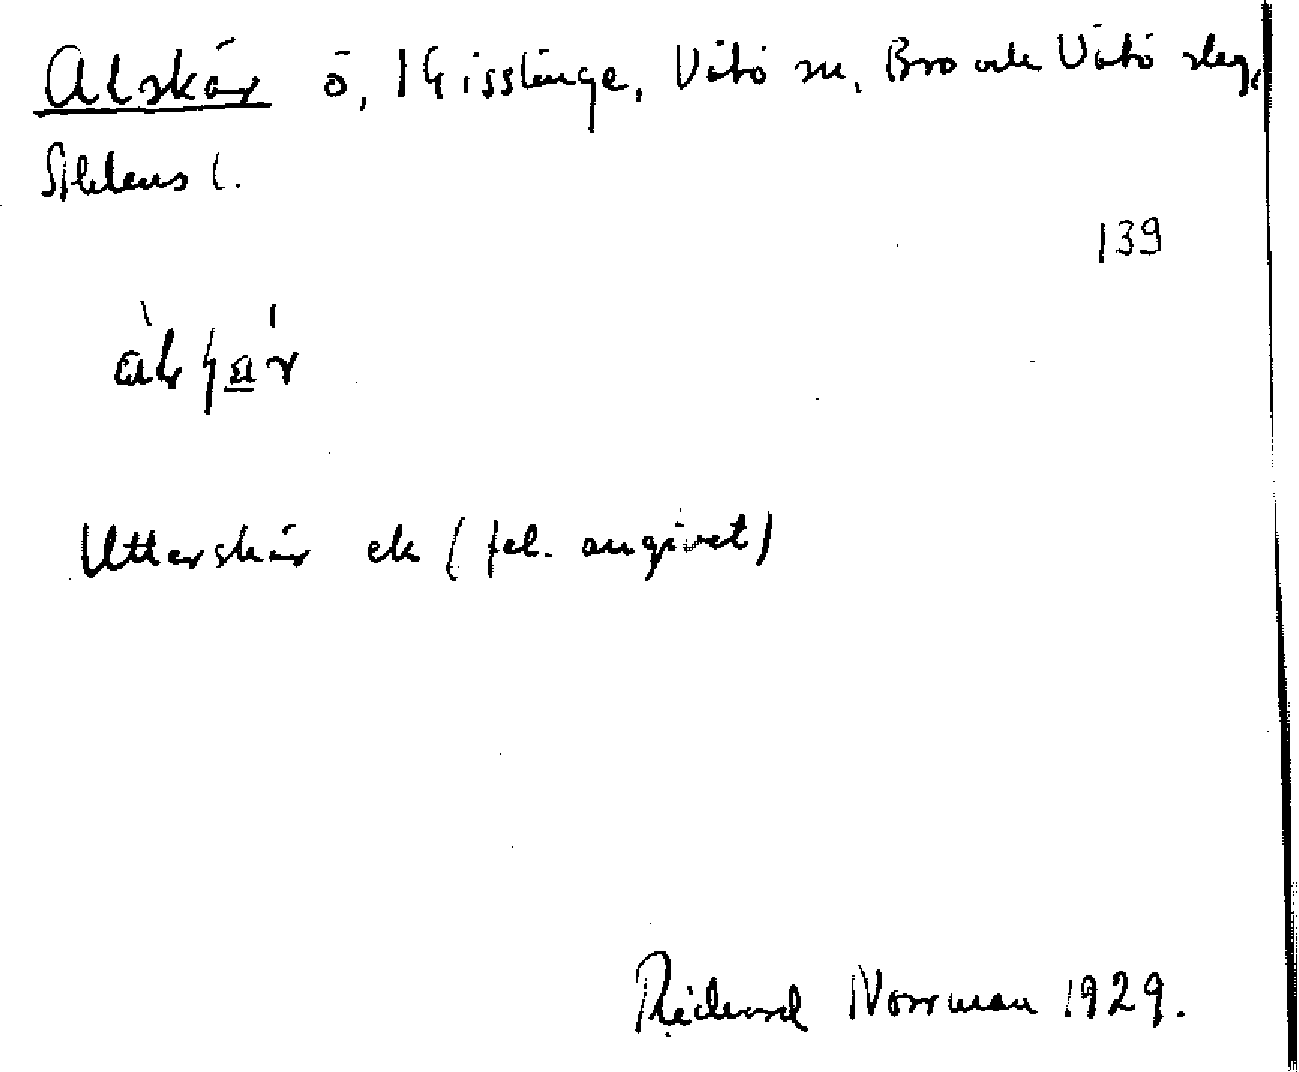 Alskär ö, Gisslinge, Vätö sn, Bro och Vätö slg,
Sthlms l.
139
Utterskär ek (fel. angivet)
Richard Norrman 1929.